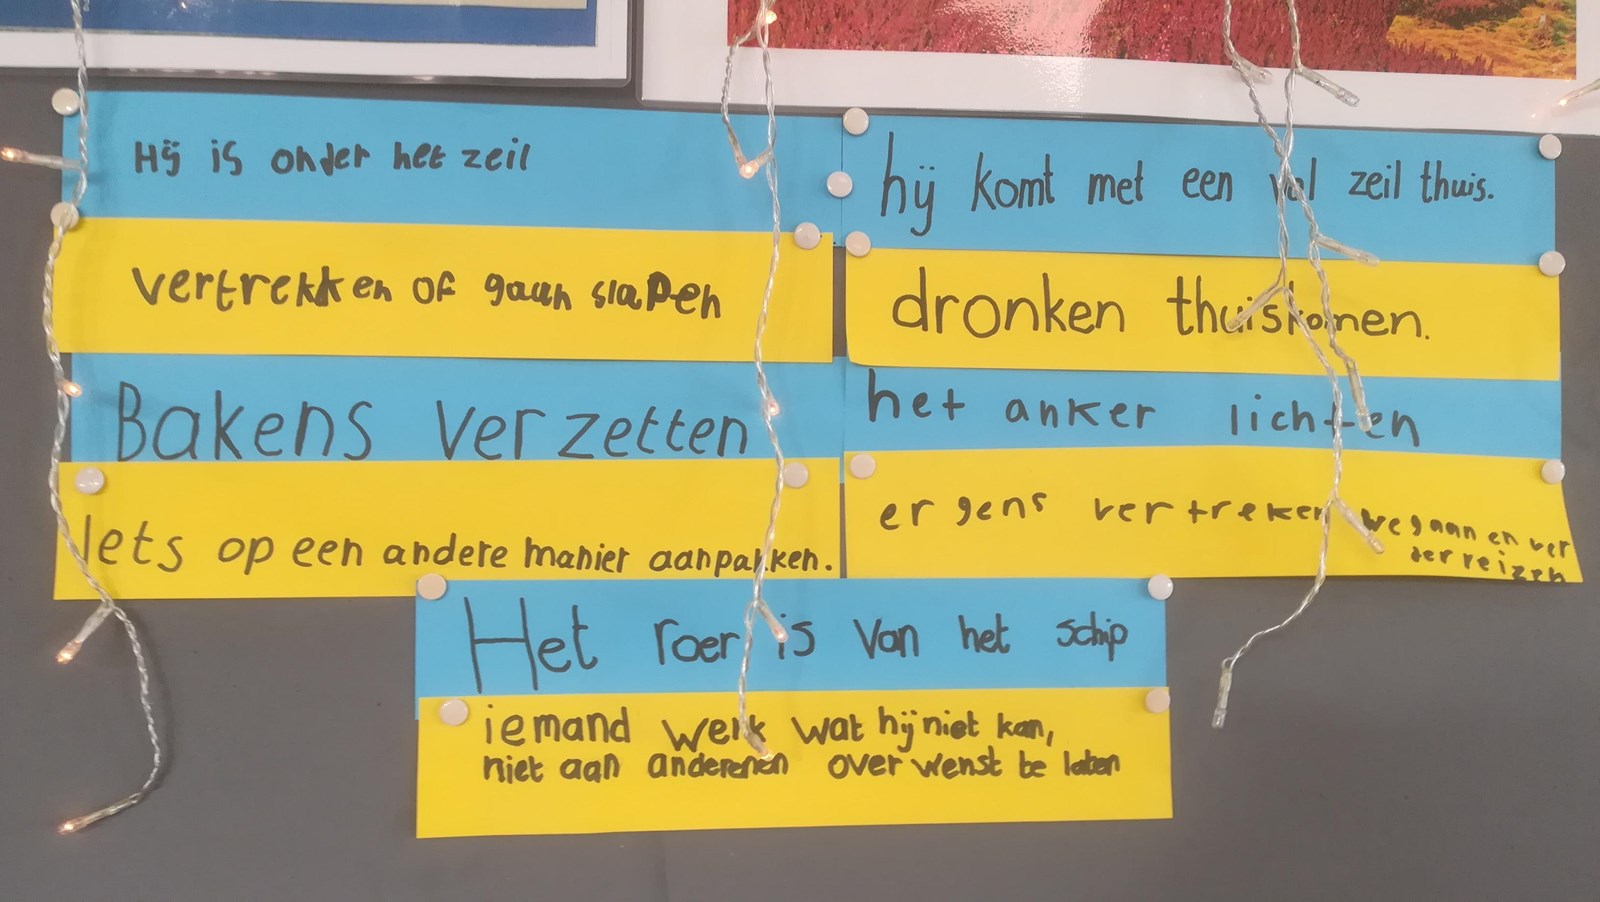 Hij is onder het zeil
vertrekken of gaan slapen
hij komt met een vol zeil thuis.
dronken thuiskomen.
Bakens verzetten
Iets op een andere manier aanpakken.
het anker lichten
ergens vertreken we gaan en ver
der reizen
Het roer is van het schip
iemand werk wat hij niet kan,
niet aan anderenen over wenst te laten